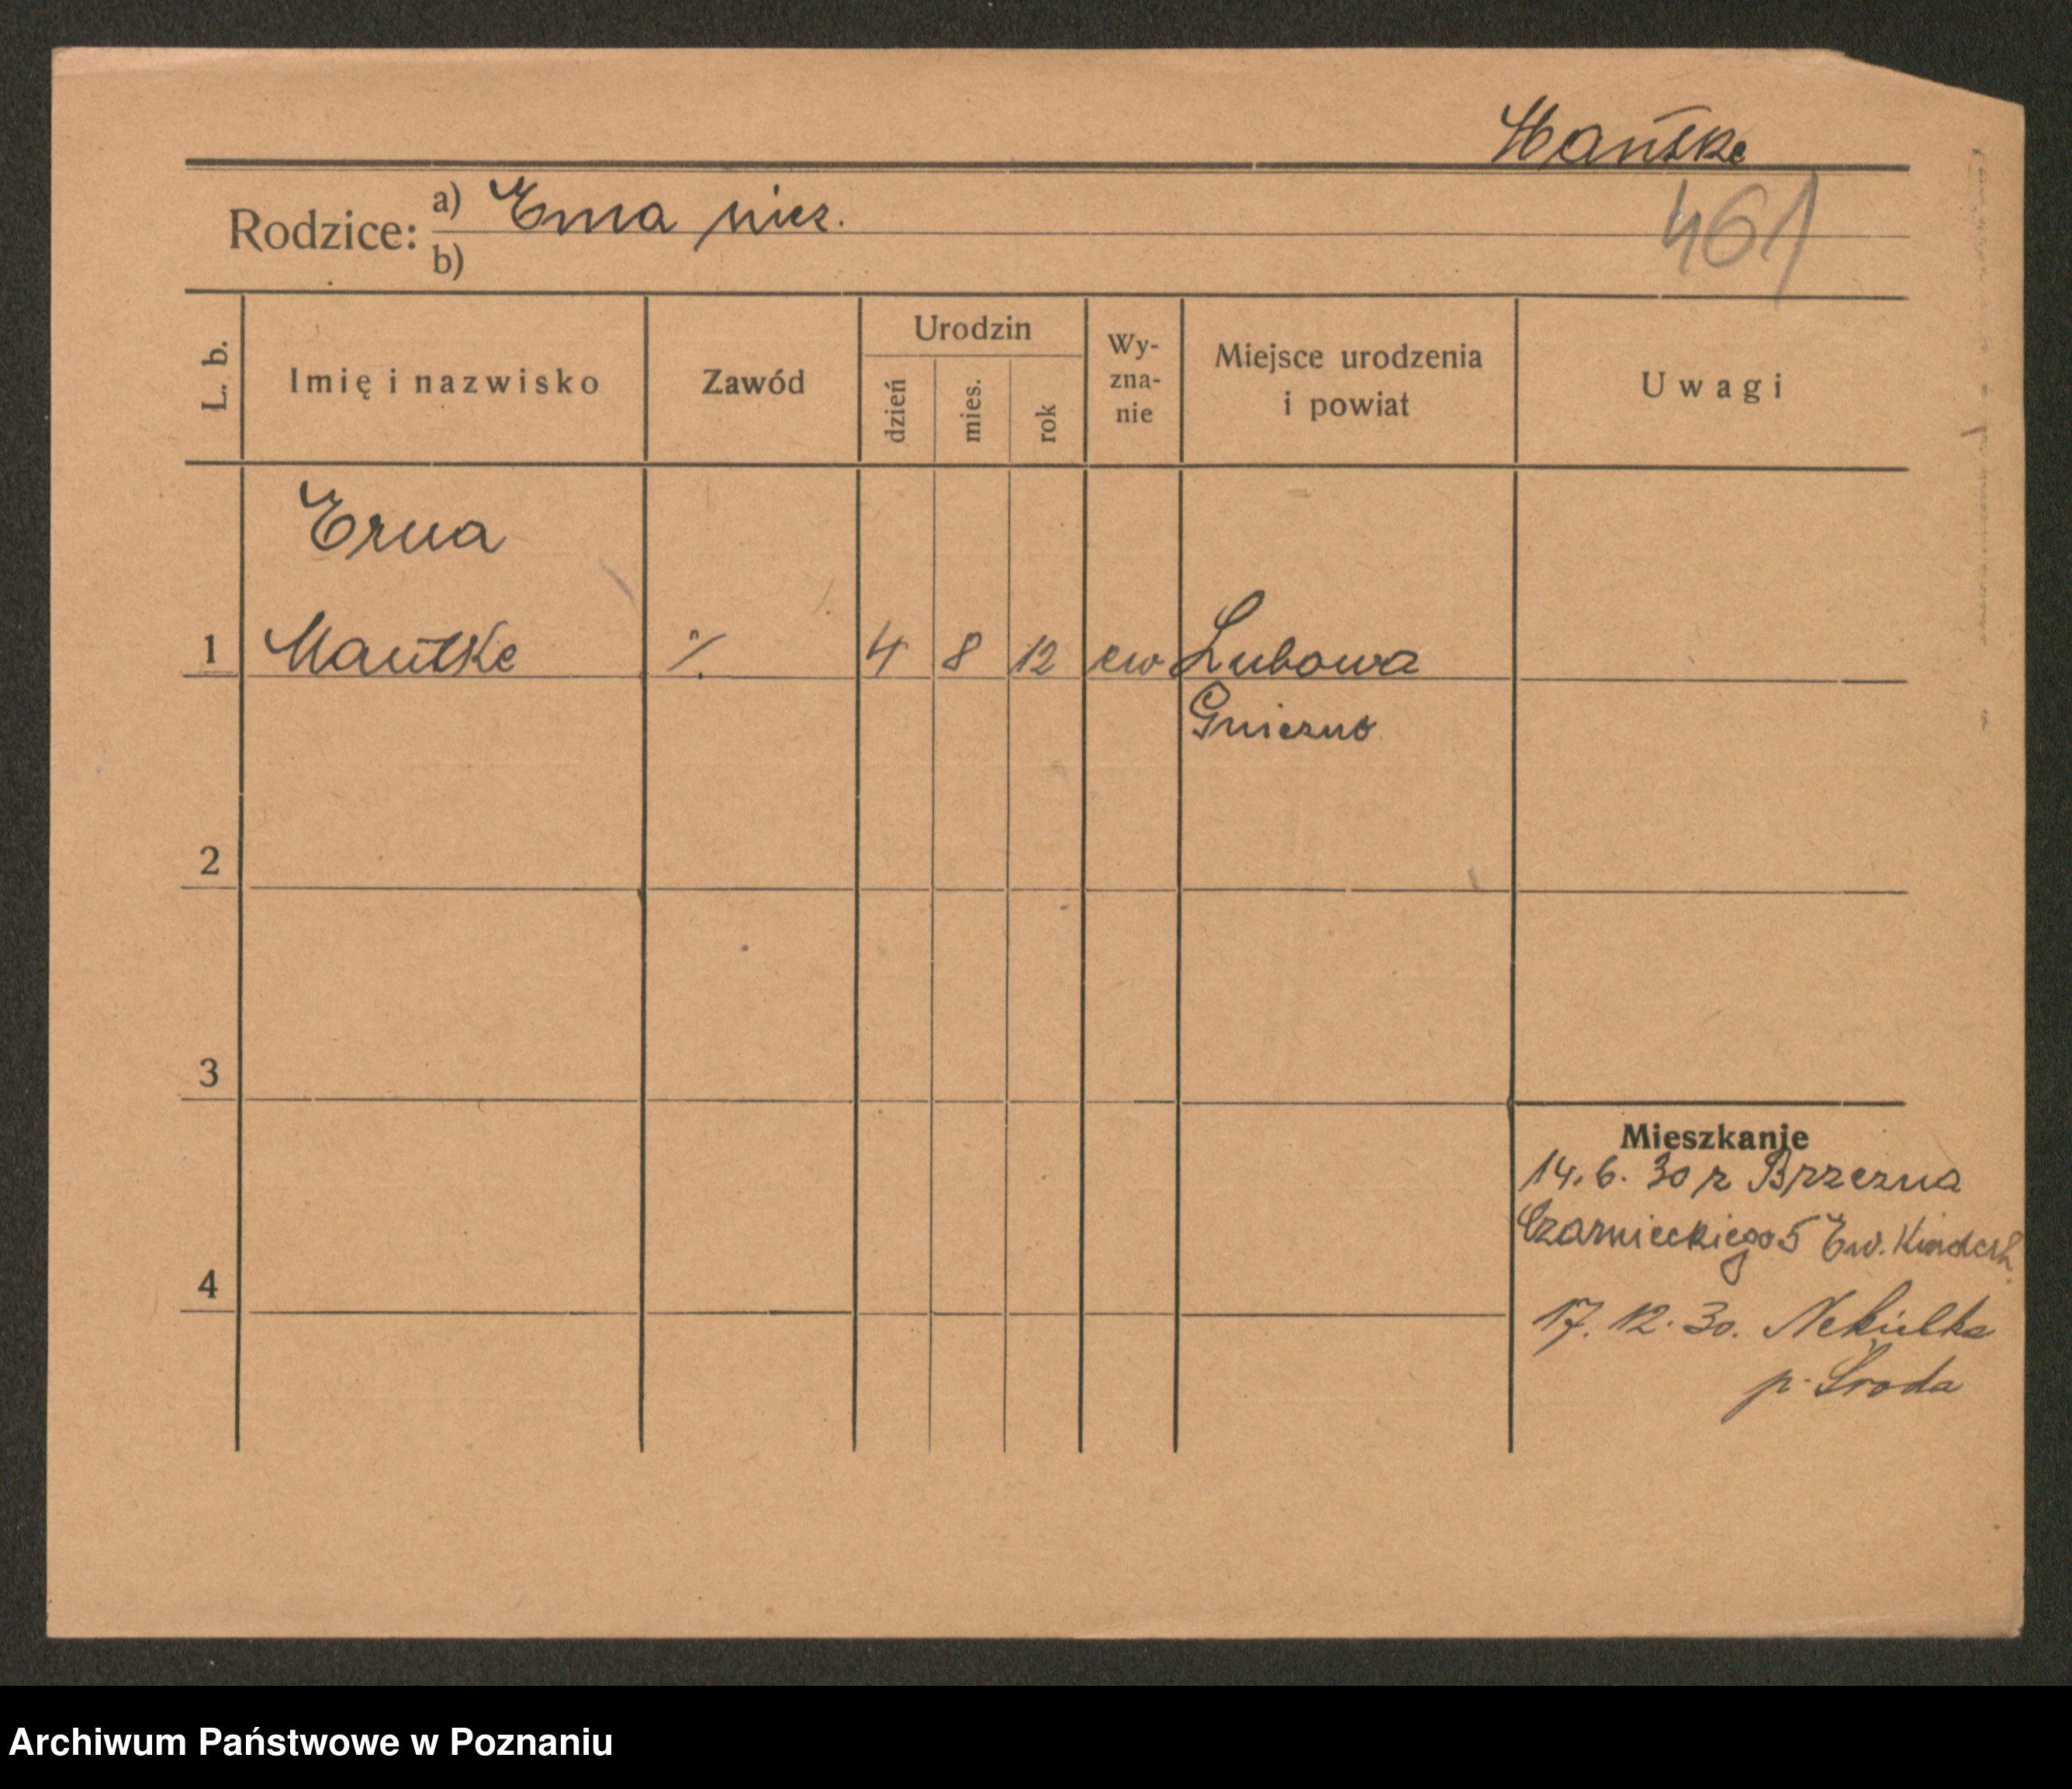 Mańtke
461
Rodzice: a) Erna niez.
b)
L. b. Imię i nazwisko Zawód Urodzin dzień mies. rok Wy-zna-nie Miejsce urodzenia i powiat Uwagi
Erna
1 Mantke % 4 8 12 ew Lubowa
Gniezno
2
3
Mieszkanie
14.6.30 r Brzezna
Czarnieckiego 5 Ew. Kinderh.
4
17.12.30. Nekielka
p. Środa
Archiwum Państwowe w Poznaniu